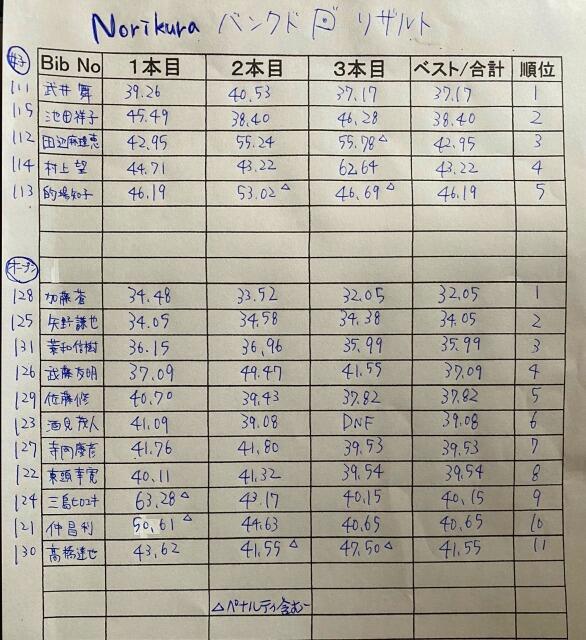 Norikura バンクド リザルト
女子 Bib No 1本目 2本目 3本目 ベスト/合計 順位
111 武井 舞 39.26 40.53 37.17 37.17 1
115 池田祥子 45.49 38.40 46.28 38.40 2
112 田辺麻理恵 42.95 55.24 55.78△ 42.95 3
114 村上望 44.71 43.22 62.64 43.22 4
113 的場知子 46.19 53.02△ 46.69△ 46.19 5
オープン
128 加藤蒼 34.48 33.52 32.05 32.05 1
125 矢野謙也 34.05 34.58 34.38 34.05 2
131 36.15 36.96 35.99 35.99 3
126 武藤友明 37.09 49.47 41.55 37.09 4
129 佐藤修 40.70 39.43 37.82 37.82 5
123 酒見茂人 41.09 39.08 DNF 39.08 6
127 寺岡慶吉 41.76 41.80 39.53 39.53 7
122 東頭幸寛 40.11 41.32 39.54 39.54 8
124 三島ヒロユキ 63.28△ 43.17 40.15 40.15 9
121 仲昌利 50.61△ 44.63 40.65 40.65 10
130 高橋達也 43.62 41.55△ 47.50△ 41.55 11
△ペナルティ含む